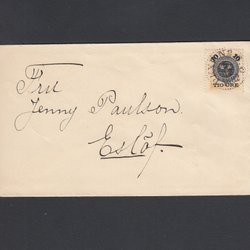 Fru
Jenny Paulson.
Eslöf.
10 10
TIO ÖRE